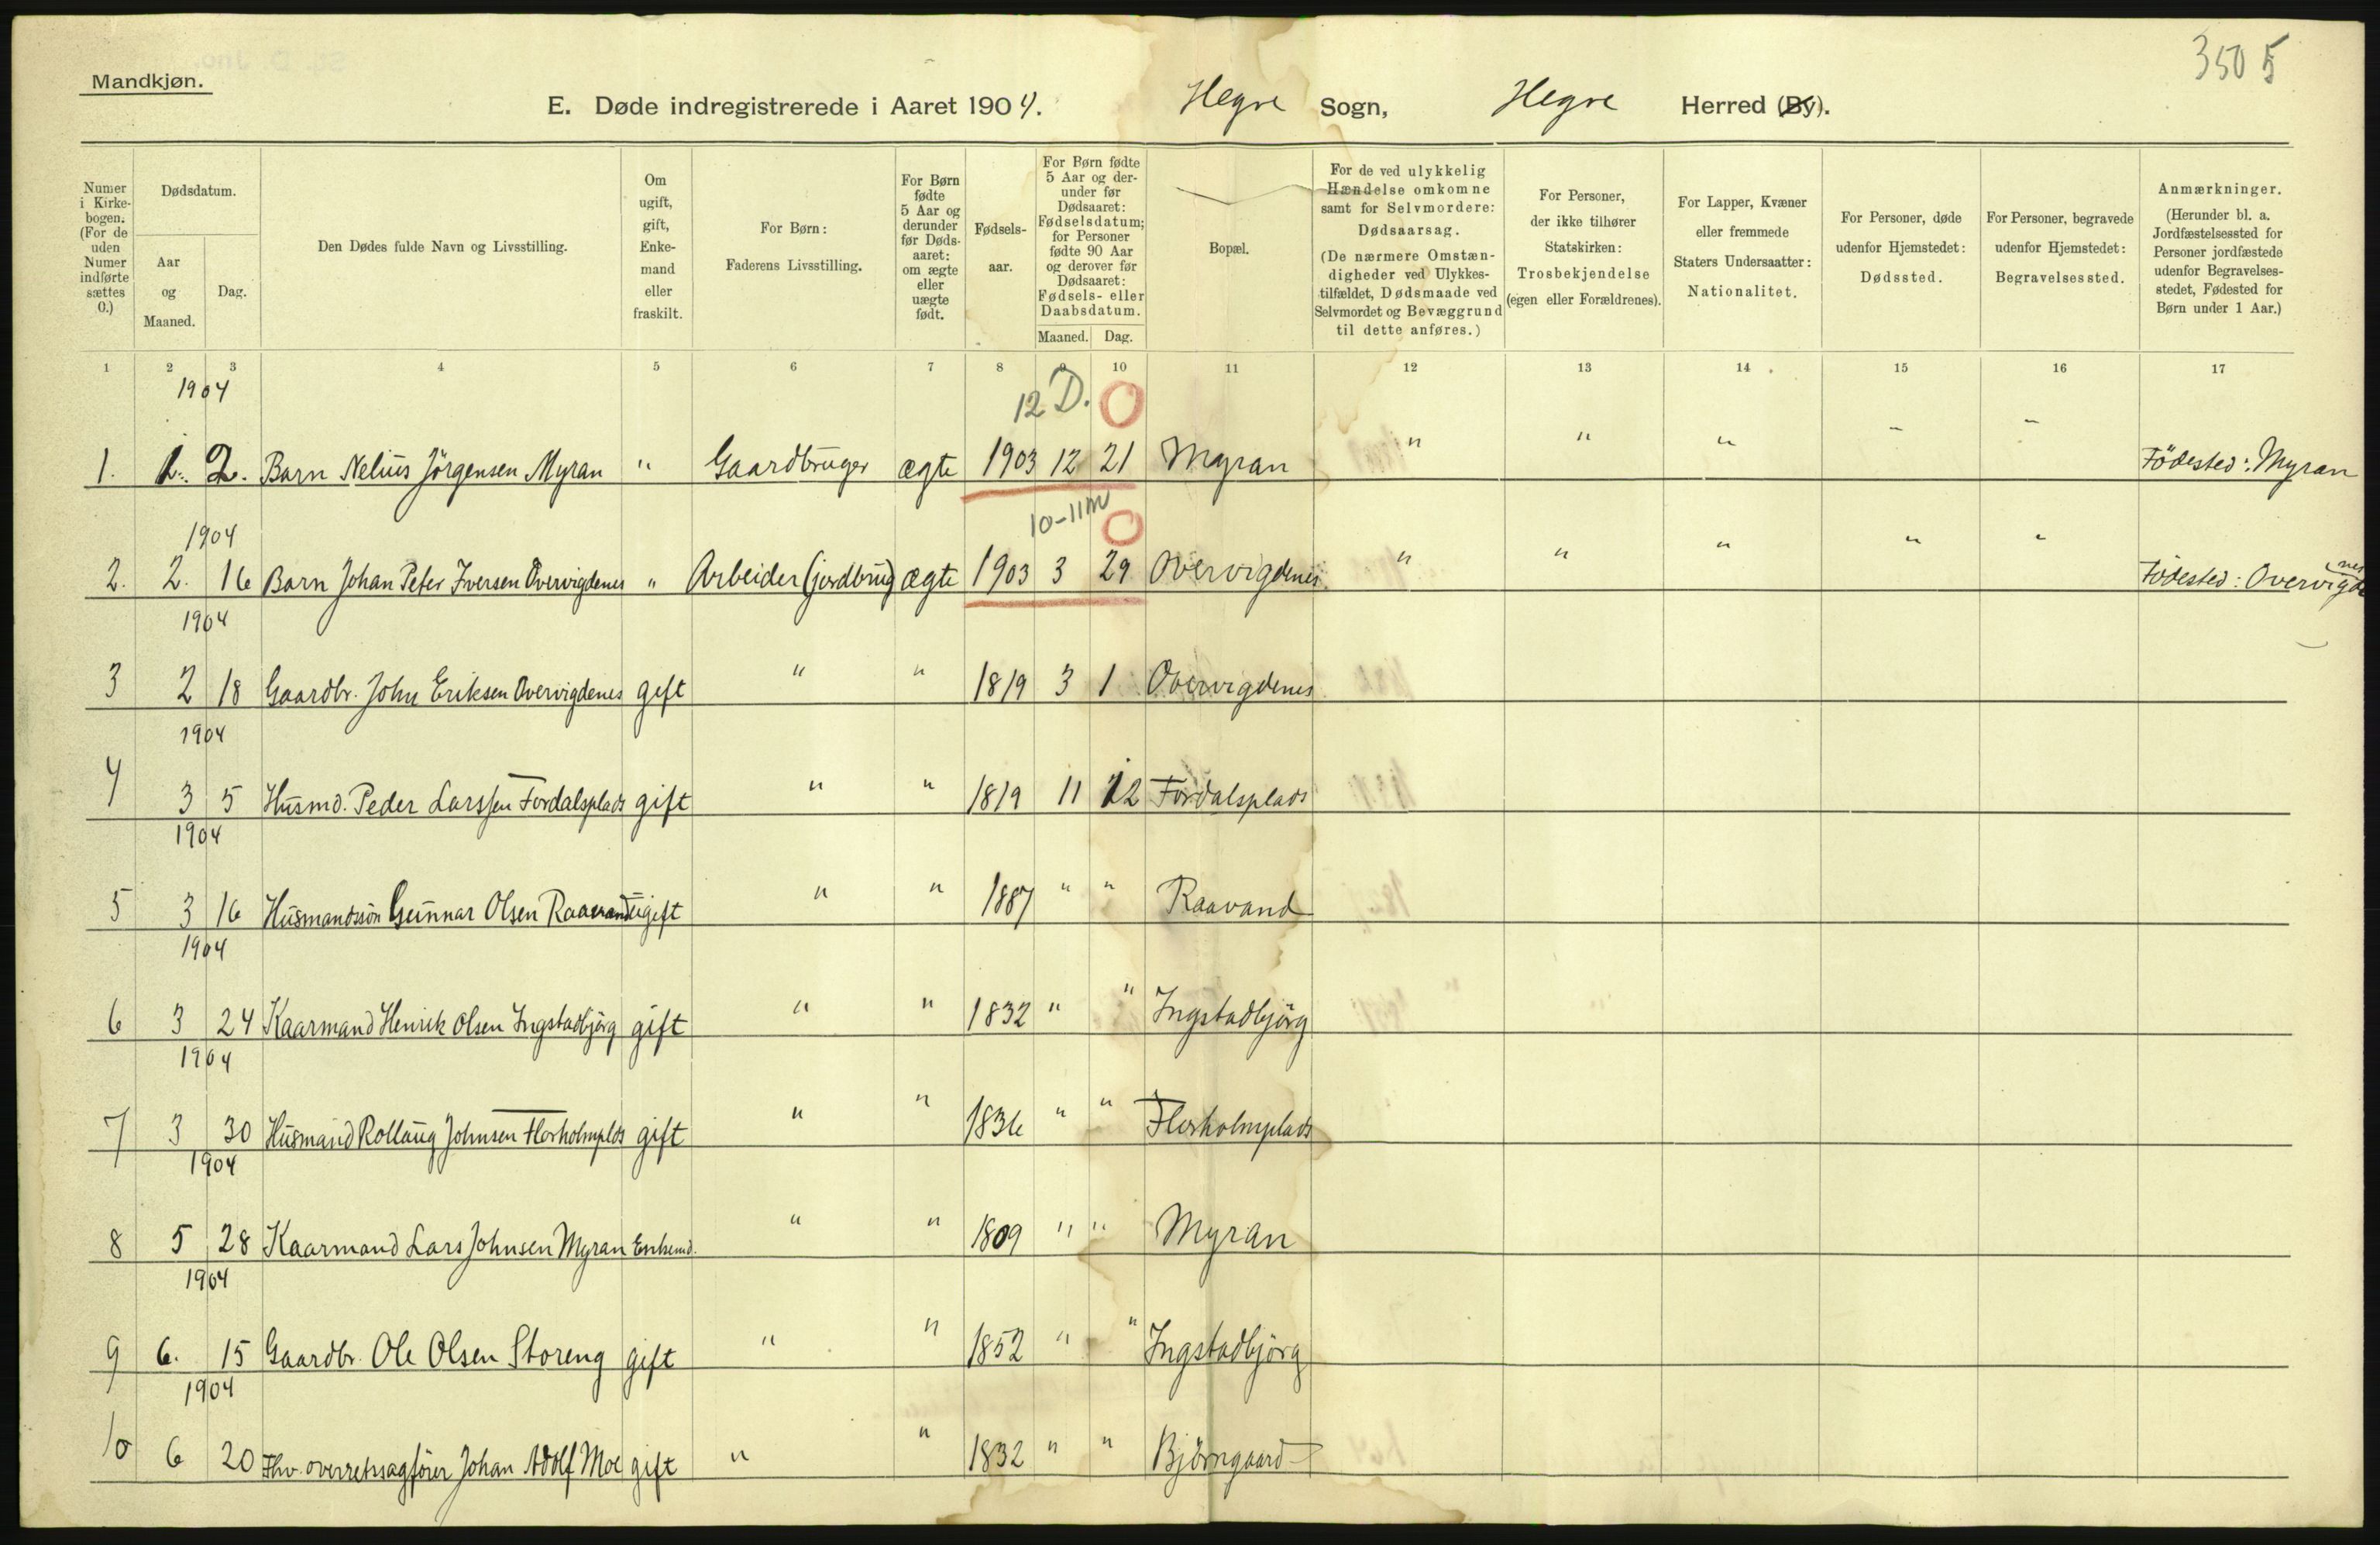 3505
Mandkjøn.
E. Døde indregistrerede i Aaret 1904. Hegre Sogn, Hegre Herred (By).
Numer i Kirkebogen. (For de uden Numer indførte sættes 0.)
Dødsdatum.
Aar og Maaned.
Dag.
Den Dødes fulde Navn og Livsstilling.
Om ugift, gift, Enkemand eller fraskilt.
For Børn: Faderens Livsstilling.
For Børn fødte 5 Aar og derunder før Dødsaaret: om ægte eller uægte født.
Fødselsaar.
For Børn fødte 5 Aar og derunder før Dødsaaret: Fødselsdatum; for Personer fødte 90 Aar og derover før Dødsaaret: Fødsels- eller Daabsdatum.
Maaned. Dag.
Bopæl.
For de ved ulykkelig Hændelse omkomne samt for Selvmordere: Dødsaarsag. (De nærmere Omstændigheder ved Ulykkestilfældet, Dødsmaade ved Selvmordet og Bevæggrund til dette anføres.)
For Personer, der ikke tilhører Statskirken: Trosbekjendelse (egen eller Forældrenes).
For Lapper, Kvæner eller fremmede Staters Undersaatter: Nationalitet.
For Personer, døde udenfor Hjemstedet: Dødssted.
For Personer, begravede udenfor Hjemstedet: Begravelsessted.
Anmærkninger. (Herunder bl. a. Jordfæstelsessted for Personer jordfæstede udenfor Begravelsesstedet, Fødested for Børn under 1 Aar.)
1 2 3 4 5 6 7 8 9 10 11 12 13 14 15 16 17
1904 12 D. O
1. 1. 2. Barn Nelius Jörgensen Myran " Gaardbruger ægte 1903 12 21 Myran " " " " " Födested: Myran
1904 10-11 M O
2. 2. 16 Barn Johan Peter Iversen Overvigdenes " Arbeider (jordbrug) ægte 1903 3 29 Overvigdenes " " " " " Födested: Overvigdenes
1904
3 2 18 Gaardbr. John Eriksen Overvigdenes gift " " 1819 3 1 Overvigdenes
1904
4 3 5 Husmd. Peder Larssen Fordalsplads gift " " 1819 11 12 Fordalsplads
1904
5 3 16 Husmandssön Gunnar Olsen Raavand ugift " " 1887 " " Raavand
1904
6 3 24 Kaarmand Henrik Olsen Ingstadbjörg gift " " 1832 " " Ingstadbjörg
1904
7 3 30 Husmand Rollaug Johnsen Florholmplds gift " " 1836 " " Florholmplads
1904
8 5 28 Kaarmand Lars Johnsen Myran Enkemd. " " 1809 " " Myran
1904
9 6. 15 Gaardbr. Ole Olsen Storeng gift " " 1852 " " Ingstadbjörg
1904
10 6 20 Fhv. overretssagförer Johan Adolf Moe gift " " 1832 " " Björngaard